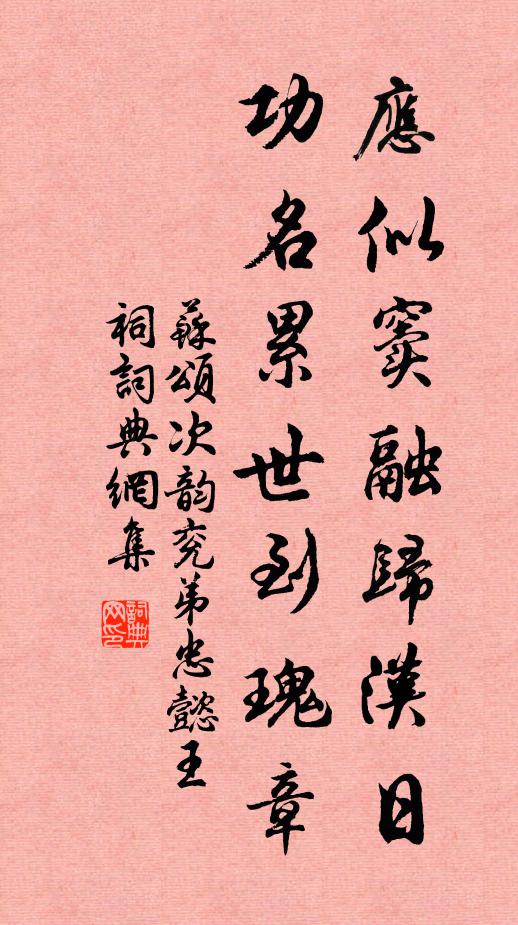 應似竇融歸漢日
功名累世到瑰章
蘇頌次韵兖弟忠懿王
祠詞典網集
詞典网印